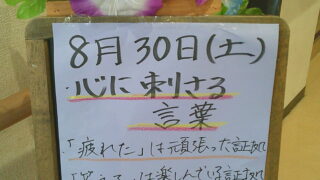 8月30日(土)
心に刺さる
言葉
・「疲れた」は頑張った証拠
は楽しんでいる証拠